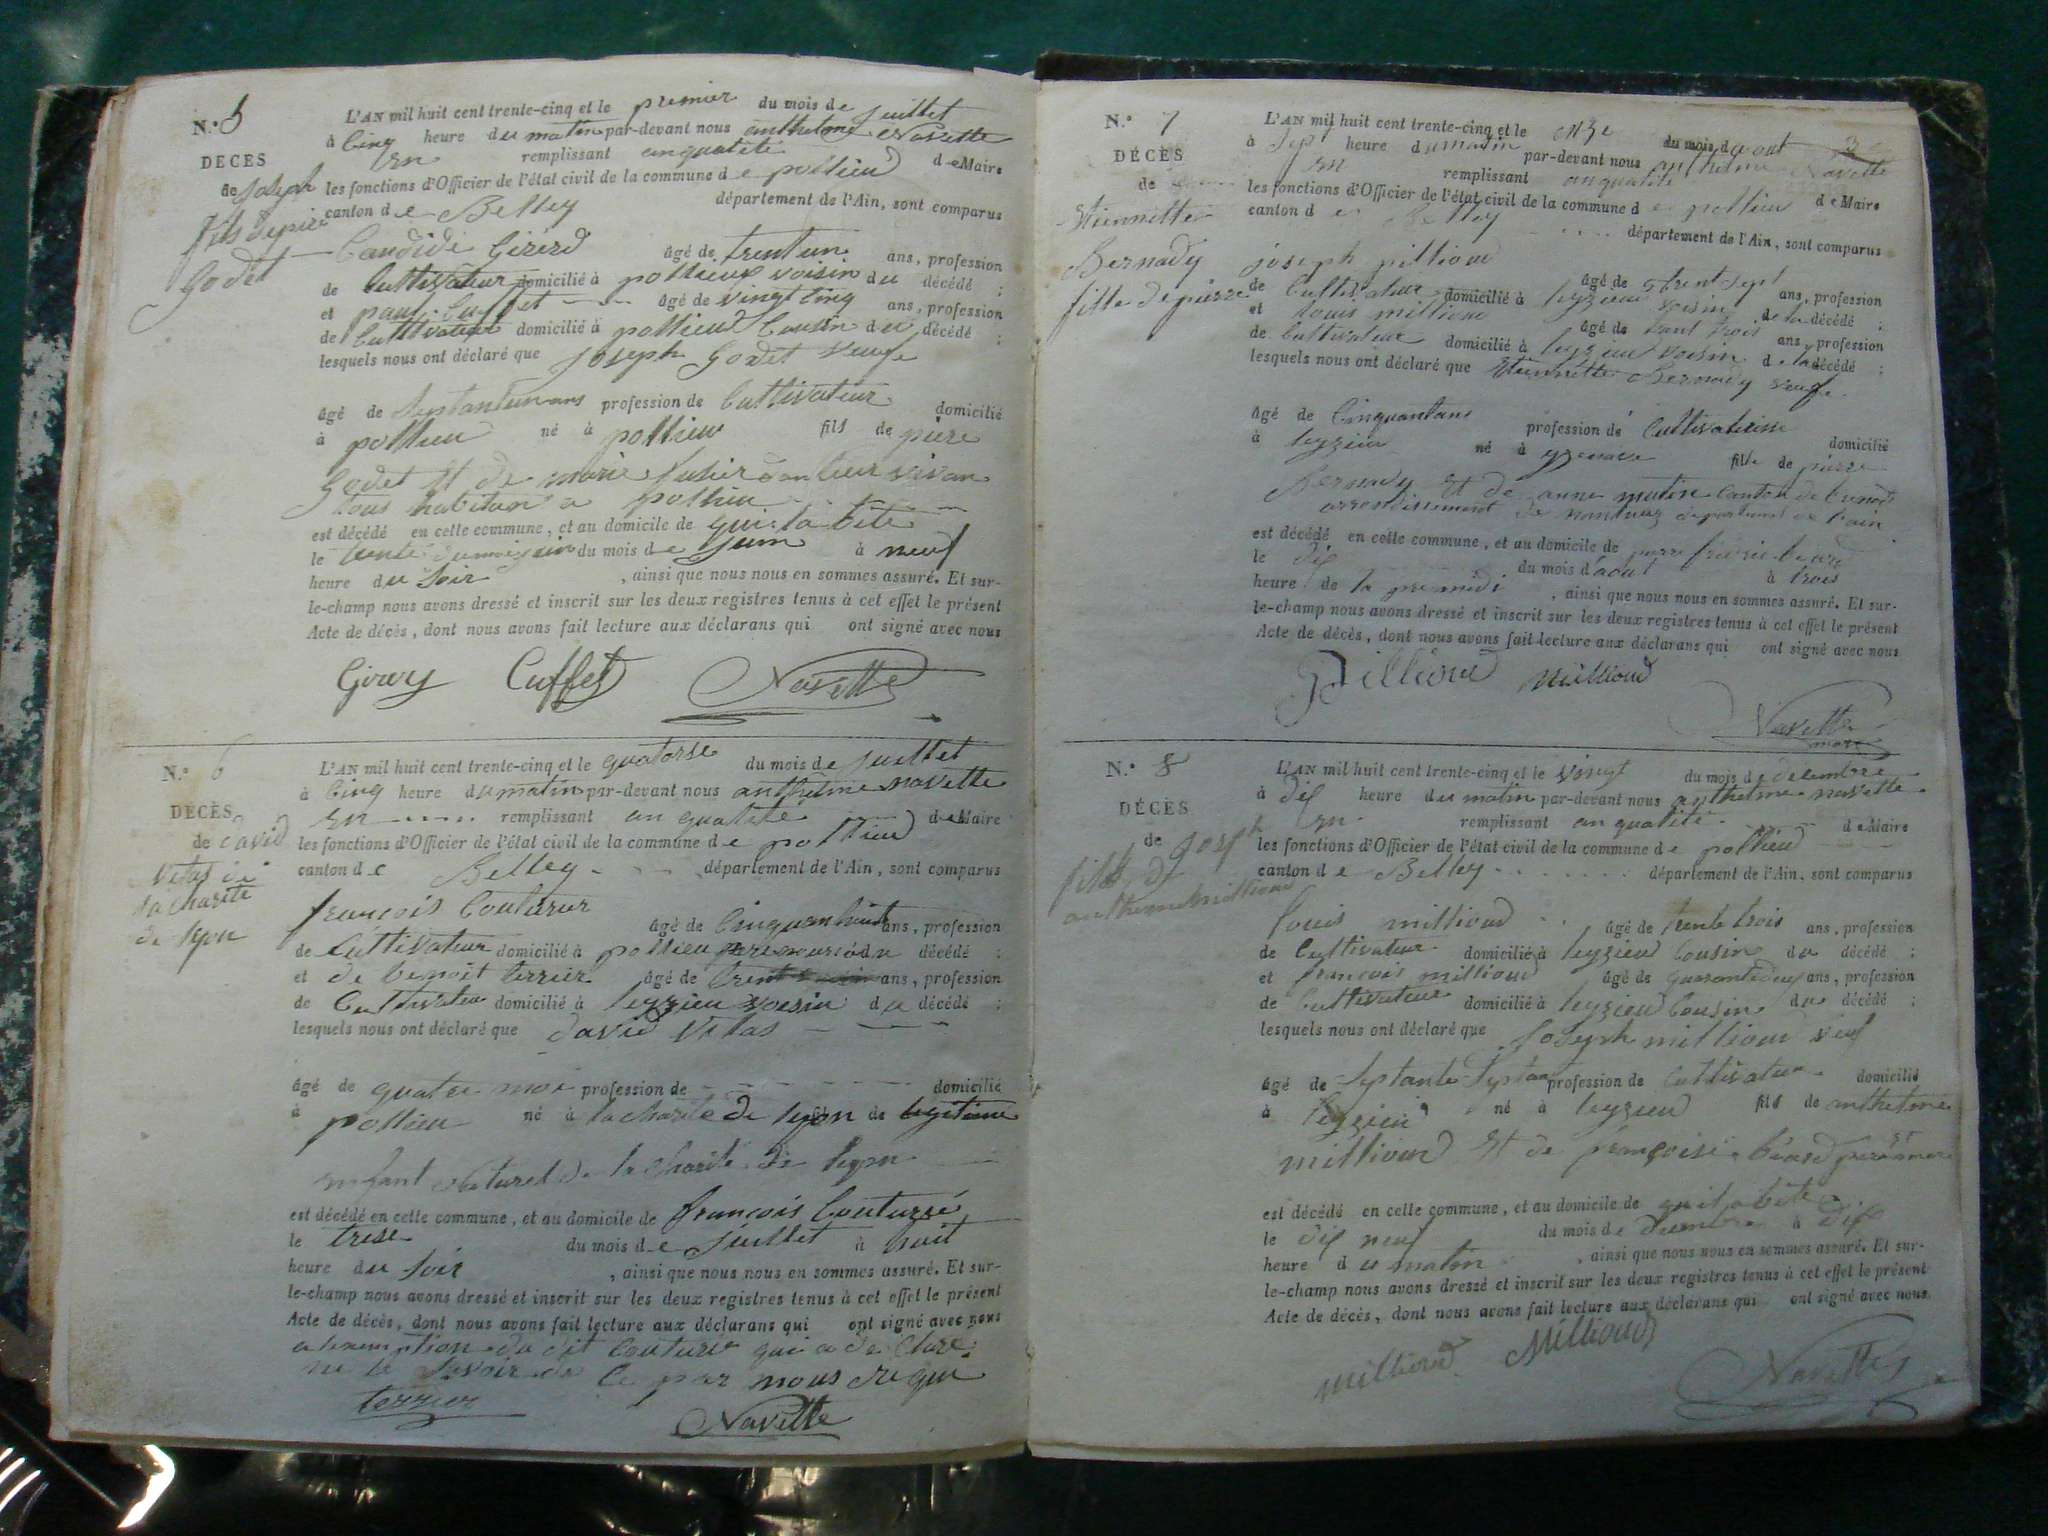 N.° 5
DÉCÈS
de Joseph
fils de pierre
Godet
L'AN mil huit cent trente-cinq et le premier du mois de juillet
à Cinq heure du matin par-devant nous anthelme Navette
En remplissant an qualité de Maire
les fonctions d'Officier de l'état civil de la commune de pollieu
canton de Belley département de l'Ain, sont comparus
Candide Girerd âgé de trentun ans, profession
de Cultivateur domicilié à pollieux voisin du décédé ;
et paul Cuffet âgé de vingt Cinq ans, profession
de Cultivateur domicilié à pollieu Cousin du décédé ;
lesquels nous ont déclaré que Joseph Godet veufe
âgé de Septantun ans profession de Cultivateur domicilié
à pollieu né à pollieu fils de piere
Godet Et de marie
tous habitan a pollieu
est décédé en cette commune, et au domicile de qui la Cité
le trente du mois de Juin à neuf
heure du Soir , ainsi que nous nous en sommes assuré. Et sur-
le-champ nous avons dressé et inscrit sur les deux registres tenus à cet effet le présent
Acte de décès, dont nous avons fait lecture aux déclarans qui ont signé avec nous
Cuffet Navette
N.° 6
DÉCÈS
de david
vitas de
la charité
de lyon
L'AN mil huit cent trente-cinq et le quatorse du mois de Juillet
à Cinq heure du matin par-devant nous anthelme navette
En remplissant an qualité de Maire
les fonctions d'Officier de l'état civil de la commune de pollieu
canton de Belley département de l'Ain, sont comparus
françois Couturier âgé de Cinquanhuit ans, profession
de Cultivateur domicilié à pollieu du décédé ;
et de benoit terrier âgé de ans, profession
de Cultivateu domicilié à leyzieu voisin du décédé ;
lesquels nous ont déclaré que david vitas
âgé de quatre moi profession de domicilié
à pollieu né à la charité de lyon de legitime
enfant naturel de la charité de lyon
est décédé en cette commune, et au domicile de françois Couturié
le trese du mois de Juillet à huit
heure du Soir , ainsi que nous nous en sommes assuré. Et sur-
le-champ nous avons dressé et inscrit sur les deux registres tenus à cet effet le présent
Acte de décès, dont nous avons fait lecture aux déclarans qui ont signé avec nous
a lexemption du dit Couturié qui a de Clare
ne le Savoir de Ce par nous requi
terrier Navette
N.° 7
DÉCÈS
de
Etiennette
Bernady
fille de pierre
L'AN mil huit cent trente-cinq et le onze du mois d'aout
à Sept heure du matin par-devant nous anthelme Navette
En remplissant an qualité de Maire
les fonctions d'Officier de l'état civil de la commune de pollieu
canton de Belley département de l'Ain, sont comparus
joseph pillioud âgé de trent sept ans, profession
de Cultivateur domicilié à leyzieu voisin de la décédé ;
et louis millioud âgé de trant trois ans, profession
de Cultivateur domicilié à leyzieu voisin de la décédé ;
lesquels nous ont déclaré que Etiennette Bernady veufe
âgé de Cinquantans profession de Cultivatrice domicilié
à leyzieu né à fille de pierre
Bernady Et de anne matin Canton de
arrondissement de nantuas departement de lain
est décédé en cette commune, et au domicile de
le dix du mois d'aout à trois
heure de la premedi , ainsi que nous nous en sommes assuré. Et sur-
le-champ nous avons dressé et inscrit sur les deux registres tenus à cet effet le présent
Acte de décès, dont nous avons fait lecture aux déclarans qui ont signé avec nous
Pillioud millioud
Navette
maire
N.° 8
DÉCÈS
de Josph
fils de
anthelme millioud
L'AN mil huit cent trente-cinq et le vingt du mois de decembre
à dix heure du matin par-devant nous anthelme navette
En remplissant an qualité de Maire
les fonctions d'Officier de l'état civil de la commune de pollieu
canton de Belley département de l'Ain, sont comparus
louis millioud âgé de trente trois ans, profession
de Cultivateur domicilié à leyzieu Cousin du décédé ;
et françois millioud âgé de quarantedeux ans, profession
de Cultivateur domicilié à leyzieu Cousin du décédé ;
lesquels nous ont déclaré que Joseph millioud veuf
âgé de Septante Sept an profession de Cultivateur domicilié
à leyzieu né à leyzieu fils de anthelme
millioud Et de françoise béard pere et mere
est décédé en cette commune, et au domicile de
le dix neuf du mois de decembre à dix
heure du matin , ainsi que nous nous en sommes assuré. Et sur-
le-champ nous avons dressé et inscrit sur les deux registres tenus à cet effet le présent
Acte de décès, dont nous avons fait lecture aux déclarans qui ont signé avec nous
millioud Millioud
Navette